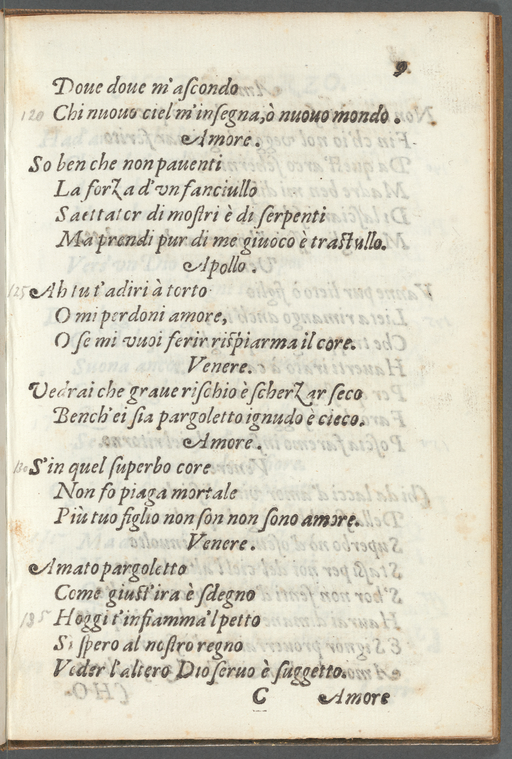 9.
Doue doue m'ascondo
120 Chi nuouo ciel m'insegna, ò nuouo mondo.
Amore.
So ben che non pauenti
La forza d'vn fanciullo
Saettator di mostri è di serpenti
Ma prendi pur di me giuoco è trastullo.
Apollo.
125 Ah tu t'adiri à torto
O mi perdoni amore,
O se mi vuoi ferir rispiarma il core.
Venere.
Vedrai che graue rischio è scherzar seco
Bench'ei sia pargoletto ignudo è cieco.
Amore.
130 S'in quel superbo core
Non fo piaga mortale
Più tuo figlio non son non sono amore.
Venere.
Amato pargoletto
Come giust'ira è sdegno
135 Hoggi t'infiamma'l petto
Si spero al nostro regno
Veder l'altero Dio seruo è suggetto.
C Amore